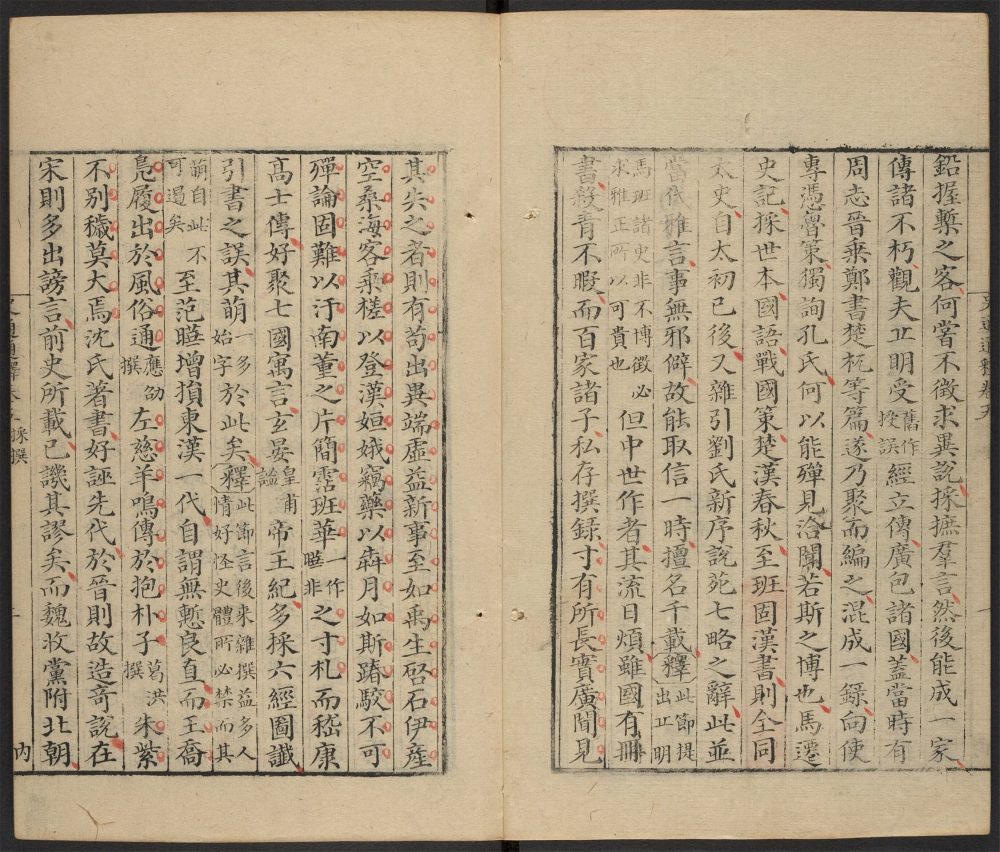 鉛握槧之客何嘗不徵求異說採摭羣言然後能成一家
傳諸不朽觀夫丘明受舊作授誤經立傳廣包諸國蓋當時有
周志晉乘鄭書楚杌等篇遂乃聚而編之混成一錄向使
專憑魯策獨詢孔氏何以能殫見洽聞若斯之博也馬遷
史記採世本國語戰國策楚漢春秋至班固漢書則全同
太史自太初已後又雜引劉氏新序說苑七略之辭此並
當代雅言事無邪僻故能取信一時擅名千載釋此節提出丘明
馬班諸史非不博徵必求雅正所以可貴也但中世作者其流日煩雖國有冊
書殺青不暇而百家諸子私存撰録寸有所長實廣聞見
其失之者則有苟出異端虛益新事至如禹生启石伊產
空桑海客乘槎以登漢姮娥竊藥以犇月如斯踳駮不可
殫論固難以汙南董之片簡霑班華一作曄非之寸札而嵇康
高士傳好聚七國寓言玄晏皇甫謐帝王紀多採六經圖讖
引書之誤其萌一多始字於此矣釋此節言後來雜撰益多人情好怪史體所必禁而其
萌自此不可遏矣至范曄增損東漢一代自謂無慙良直而王喬
鳧履出於風俗通應劭撰左慈羊鳴傳於抱朴子葛洪撰朱紫
不別穢莫大焉沈氏著書好誣先代於晉則故造奇說在
宋則多出謗言前史所載已譏其謬矣而魏收黨附北朝
史通通釋卷五採撰
內